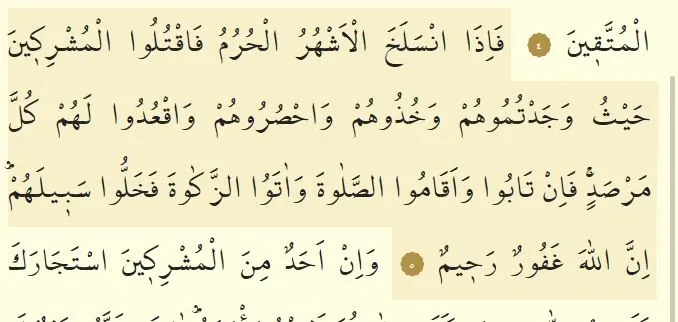 الْمُتَّقٖينَ ٤ فَاِذَا انْسَلَخَ الْاَشْهُرُ الْحُرُمُ فَاقْتُلُوا الْمُشْرِكٖينَ
حَيْثُ وَجَدْتُمُوهُمْ وَخُذُوهُمْ وَاحْصُرُوهُمْ وَاقْعُدُوا لَهُمْ كُلَّ
مَرْصَدٍۚ فَاِنْ تَابُوا وَاَقَامُوا الصَّلٰوةَ وَاٰتَوُا الزَّكٰوةَ فَخَلُّوا سَبٖيلَهُمْؕ
اِنَّ اللّٰهَ غَفُورٌ رَحٖيمٌ ٥ وَاِنْ اَحَدٌ مِنَ الْمُشْرِكٖينَ اسْتَجَارَكَ